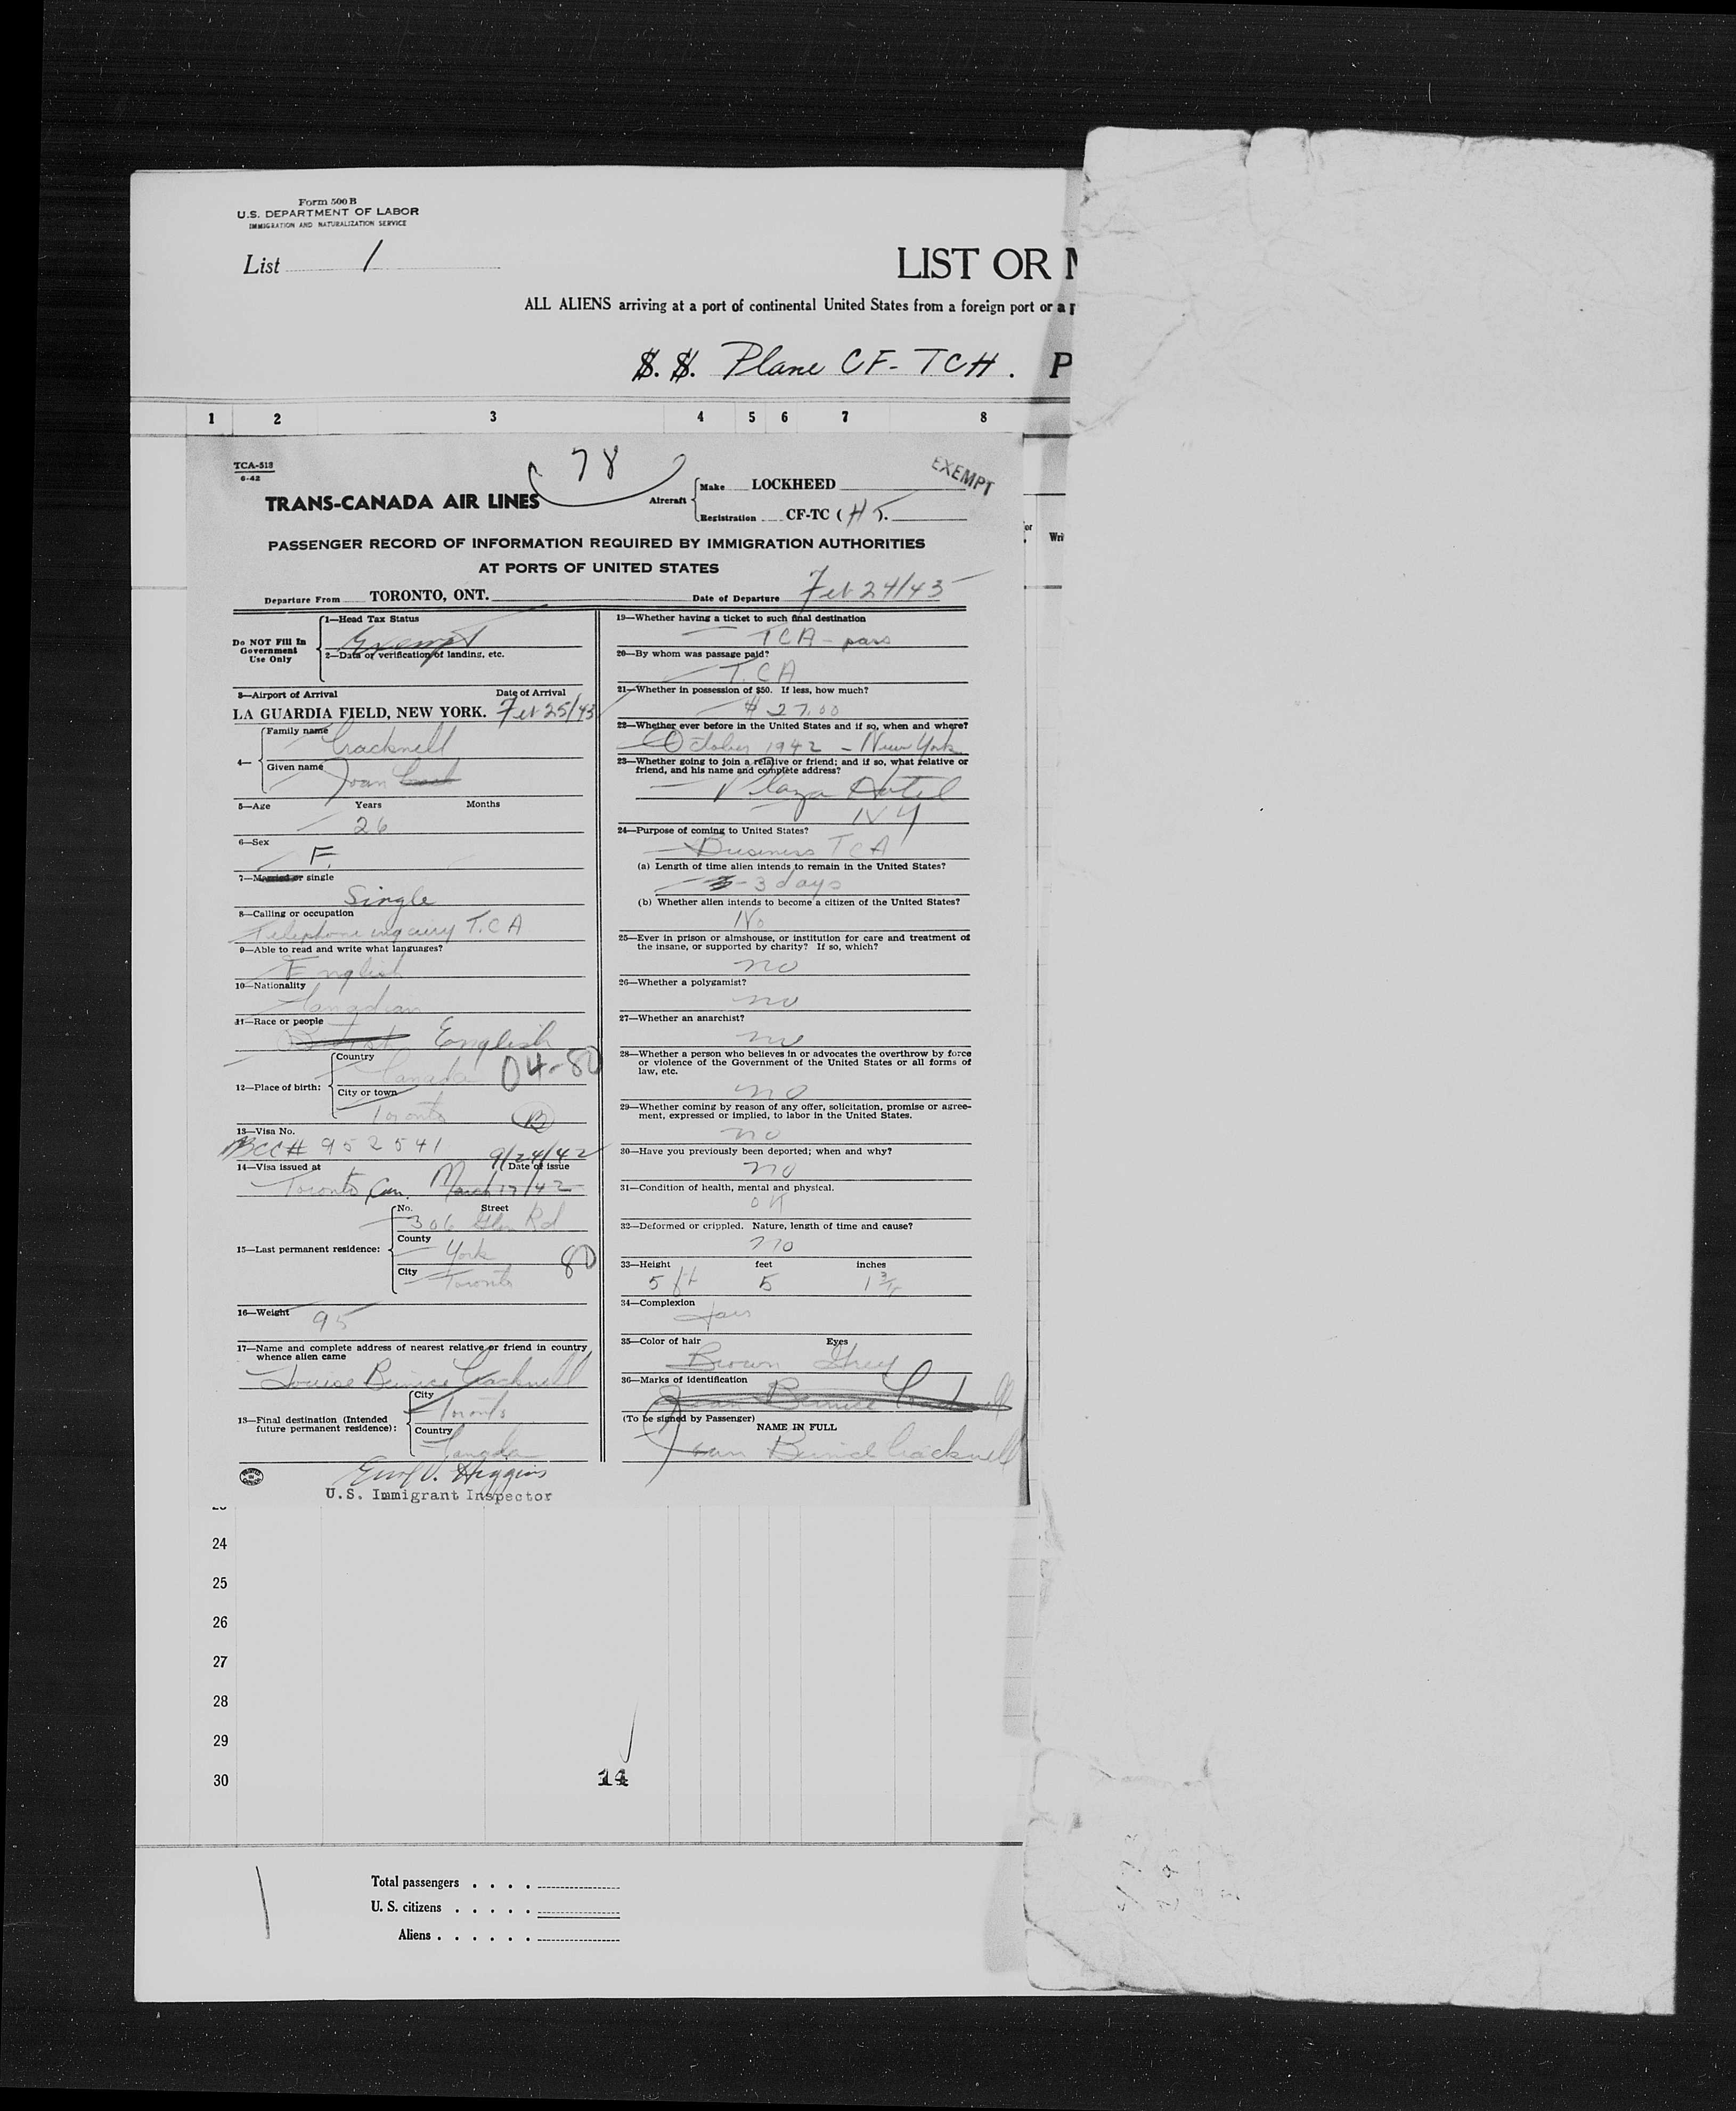 Form 500 B
U.S. DEPARTMENT OF LABOR
IMMIGRATION AND NATURALIZATION SERVICE
List 1
LIST OR
ALL ALIENS arriving at a port of continental United States from a foreign port or a
S. S. Plane CF-TCH. P
1 2 3 4 5 6 7 8
TCA-513
6-42
78
EXEMPT
TRANS-CANADA AIR LINES
Aircraft
Make LOCKHEED
Registration CF-TC (H).
PASSENGER RECORD OF INFORMATION REQUIRED BY IMMIGRATION AUTHORITIES
AT PORTS OF UNITED STATES
Departure From TORONTO, ONT. Date of Departure Feb 24/43
Do NOT Fill In Government Use Only
1—Head Tax Status
Exempt
2—Data or verification of landing, etc.
3—Airport of Arrival Date of Arrival
LA GUARDIA FIELD, NEW YORK. Feb 25/43
4— Family name
Cracknell
Given name
Joan
5—Age Years Months
26
6—Sex
F.
7—Married or single
Single
8—Calling or occupation
Telephone inquiry T.C.A
9—Able to read and write what languages?
English
10—Nationality
Canadian
11—Race or people
English
12—Place of birth:
Country
Canada 04-80
City or town
Toronto B
13—Visa No.
BCC# 952541 9/24/42
14—Visa issued at Date of issue
Toronto, Can. March 17/42
15—Last permanent residence:
No. Street
306 Glen Rd
County
York
80
City
Toronto
16—Weight
95
17—Name and complete address of nearest relative or friend in country
whence alien came
Louise Bernice Cracknell
18—Final destination (Intended
future permanent residence):
City
Toronto
Country
Canada
Higgins
U.S. Immigrant Inspector
19—Whether having a ticket to such final destination
TCA - pass
20—By whom was passage paid?
T.C.A
21—Whether in possession of $50. If less, how much?
$ 27.00
22—Whether ever before in the United States and if so, when and where?
October 1942 - New York
23—Whether going to join a relative or friend; and if so, what relative or
friend, and his name and complete address?
Plaza Hotel
NY
24—Purpose of coming to United States?
Business TCA
(a) Length of time alien intends to remain in the United States?
3 days
(b) Whether alien intends to become a citizen of the United States?
No
25—Ever in prison or almshouse, or institution for care and treatment of
the insane, or supported by charity? If so, which?
no
26—Whether a polygamist?
no
27—Whether an anarchist?
no
28—Whether a person who believes in or advocates the overthrow by force
or violence of the Government of the United States or all forms of
law, etc.
no
29—Whether coming by reason of any offer, solicitation, promise or agree-
ment, expressed or implied, to labor in the United States.
no
30—Have you previously been deported; when and why?
no
31—Condition of health, mental and physical.
OK
32—Deformed or crippled. Nature, length of time and cause?
no
33—Height feet inches
5 ft 5 1 3/4
34—Complexion
fair
35—Color of hair Eyes
Brown Grey
36—Marks of identification
Joan Bernice Cracknell
(To be signed by Passenger)
NAME IN FULL
Joan Bernice Cracknell
24
25
26
27
28
29
30
14
Total passengers
U. S. citizens
Aliens